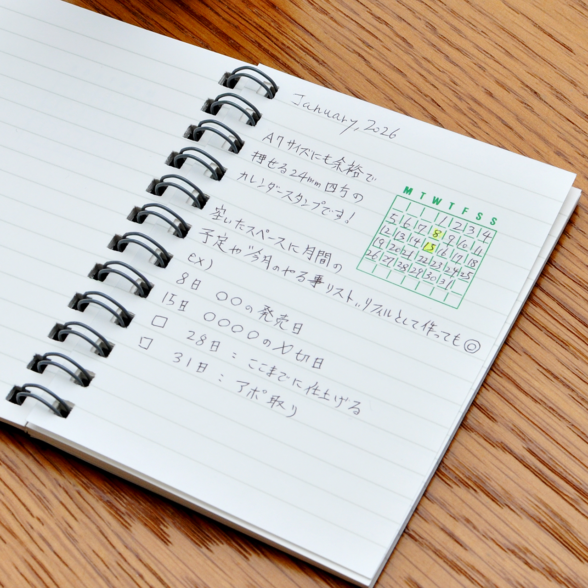 January, 2026
A7サイズにも余裕で
押せる24mm四方の
カレンダースタンプです!
空いたスペースに月間の
予定や今月のやる事リスト、リフィルとして作っても◎
ex)
8日 〇〇の発売日
15日 〇〇〇〇の〆切日
□ 28日:ここまでに仕上げる
□ 31日:アポ取り
M T W T F S S
1 2 3 4
5 6 7 8 9 10 11
12 13 14 15 16 17 18
19 20 21 22 23 24 25
26 27 28 29 30 31